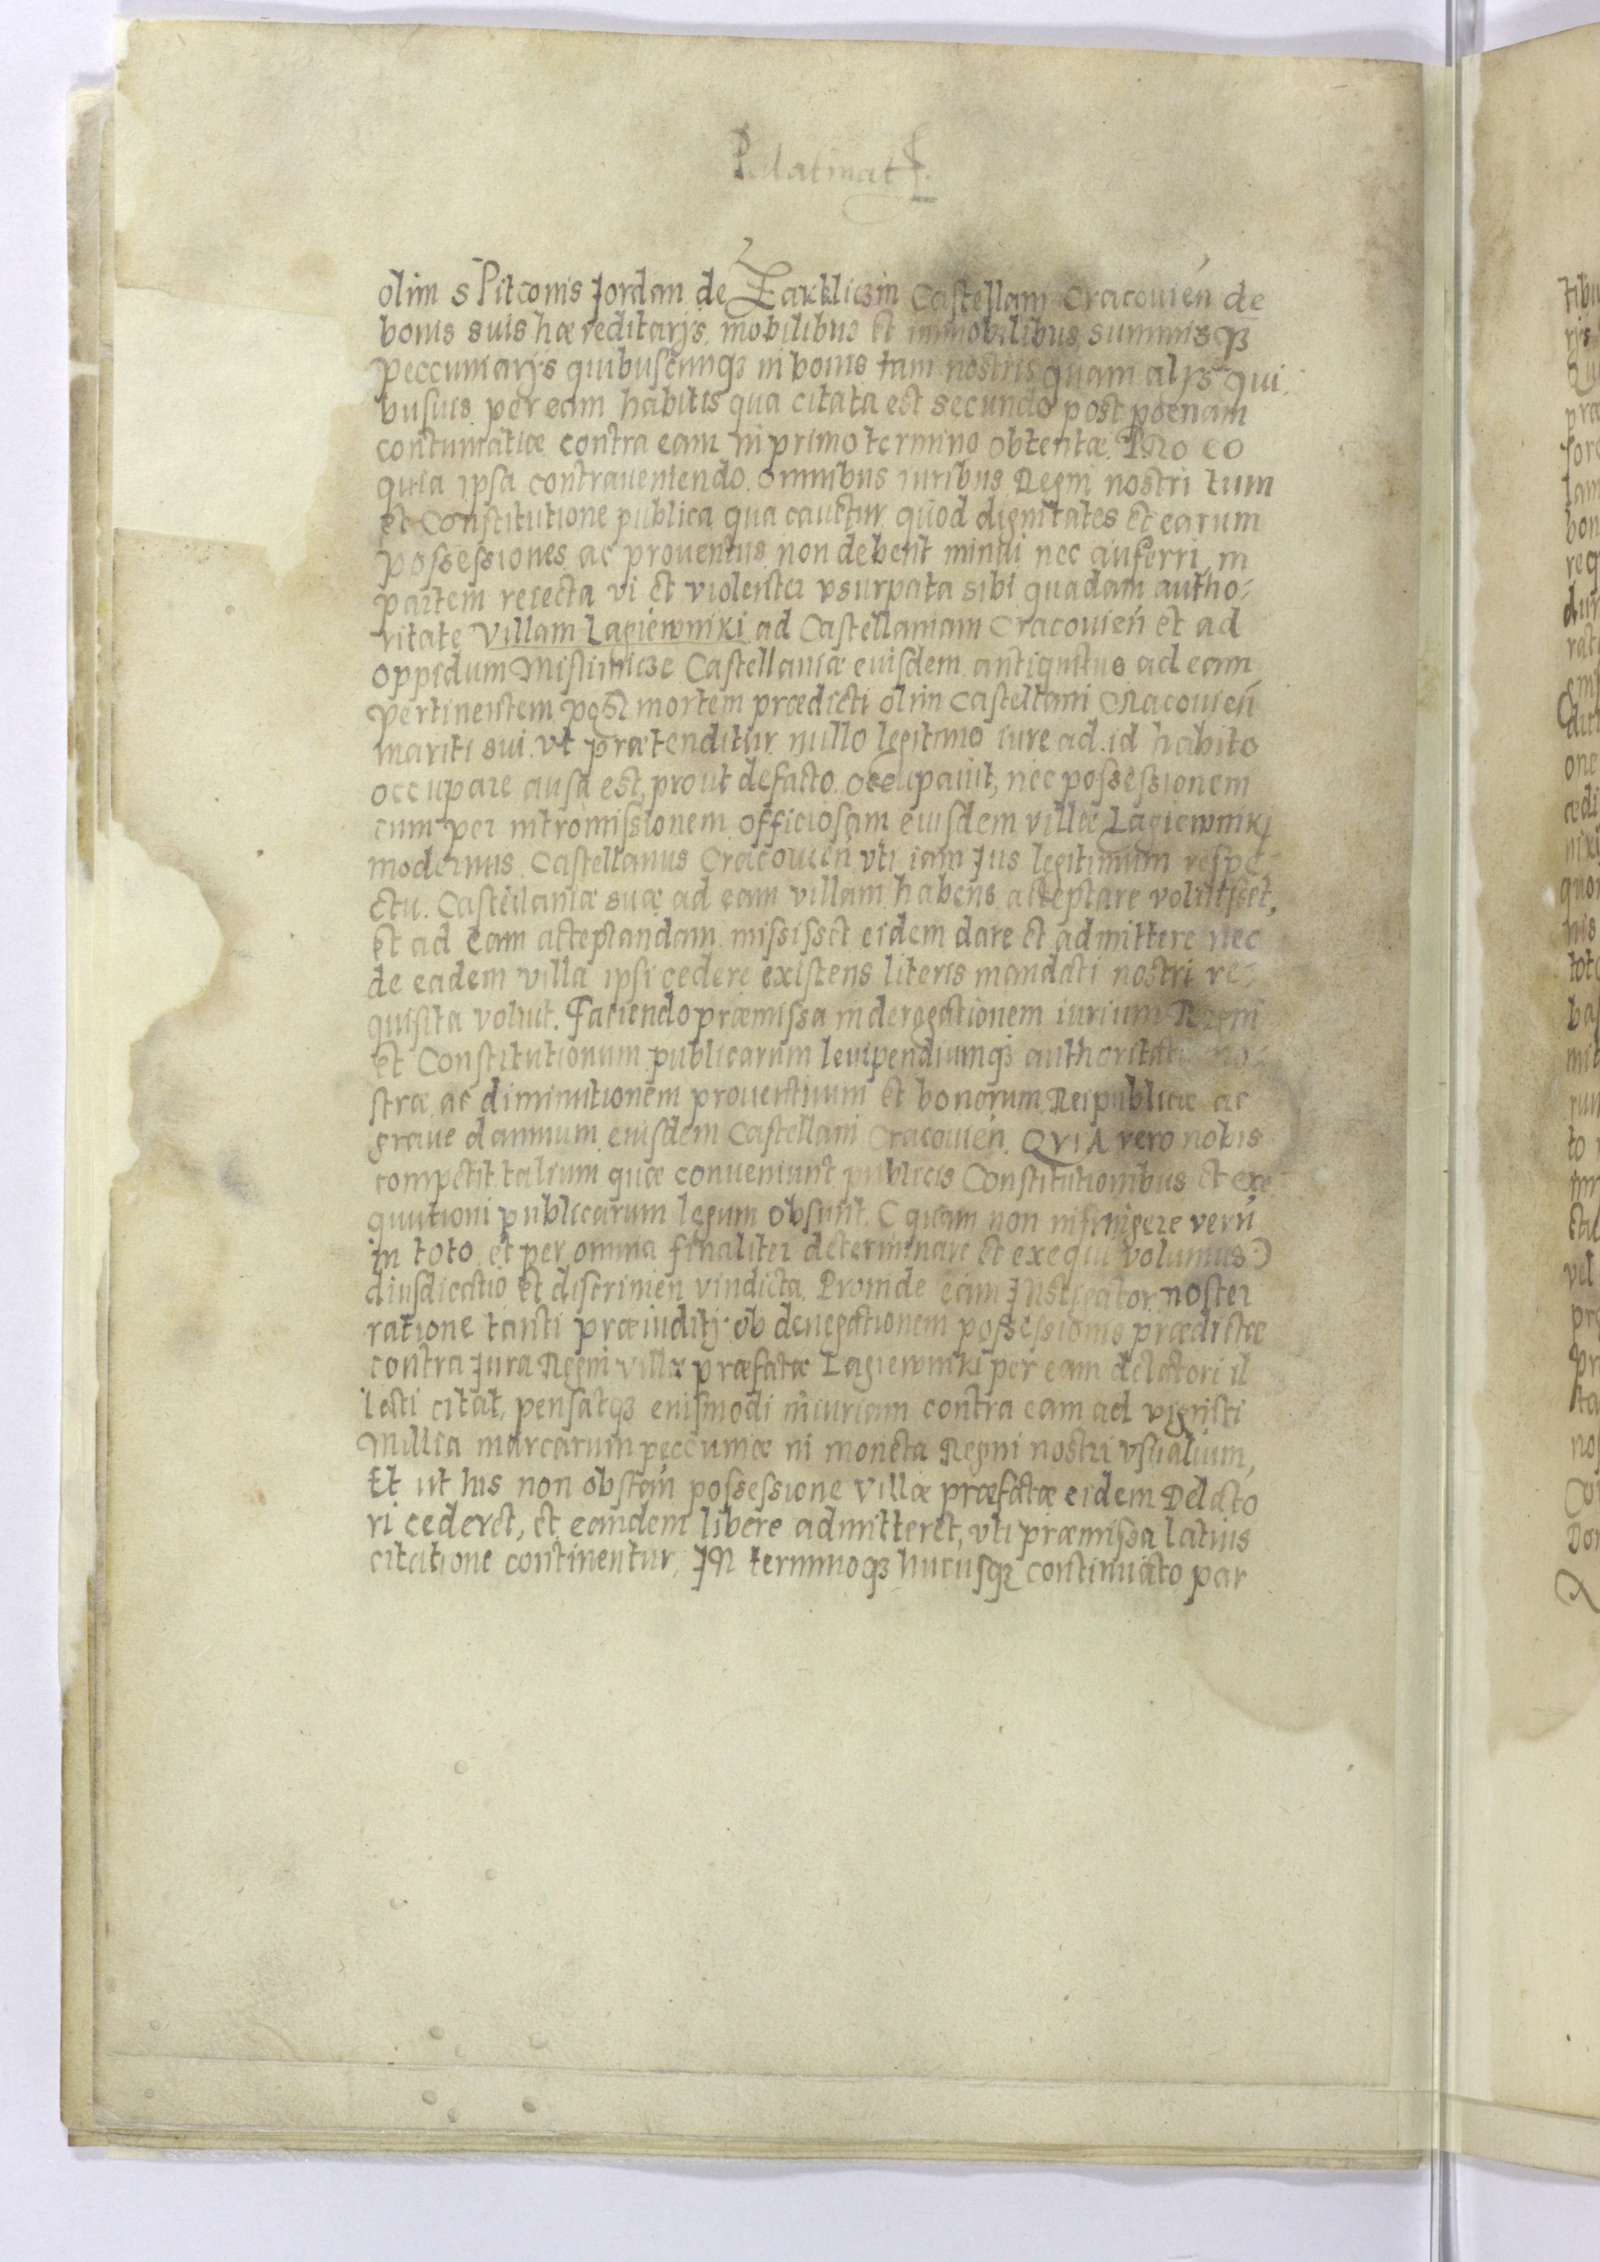 Palatinat
olim SPitconis Jordan de Zakkliczin Castellani Cracouień de
bonis suis hæreditarijs mobilibus et immobilibus summisqз
peccuniarijs quibuscunqз in bonis tam nostris quam alijs qui
busuis per eam habitis qua citata est secundo post poenam
contumatiæ contra eam in primo termino obtentæ. PRO EO
quia ipsa contraueniendo omnibus iuribus Regni nostri tum
et Constitutione publica qua cauetur quod dignitates et earum
possessiones ac prouentus non debent minui nec auferri, in
partem reiecta vi et violenter vsurpata sibi quadam autho-
ritate Villam Lagiewniki ad Castellaniam Cracouień et ad
oppidum Misliimicze Castellaniæ euisdem antiquitus ad eam
pertinentem post mortem prædicti olim Castellani Cracouień
mariti sui vt prætenditur nullo legitimo iure ad id habito
occupare ausa est, prout defacto occupauit, nec possessionem
cum per intromissionem officiosam eiusdem villæ Lagiewniki
modernus Castellanus Cracouień vti iam Jus legitimum respe-
ctu Castellaniæ suæ ad eam villam habens acceptare voluisset,
et ad eam acceptandam misisset eidem dare et admittere nec
de eadem villa ipsi cedere existens literis mandati nostri re-
quisita voluit. Faciendo præmissa in derogationem iurium Regni
et Constitutionum publicarum leuipendiumqз authoritatis no-
stræ ac diminutionem prouentuum et bonorum Reipublicæ ac
graue damnum eiusdem Castellani Cracouień. QVIA vero nobis
competit talium quæ conueniunt publicis Constitutionibus et exe
quutioni publicarum legum obsunt. (quam non infringere verū
in toto et per omnia finaliter determinare et exequi volumus)
diiudicatio et discrimen vindicta. Proinde eam Instigator noster
ratione tanti præiuditij ob denegationem possessionis prædictæ
contra Jura Regni villæ præfatæ Lagiewniki per eam delatori il
lati citat, pensatqз eiusmodi iniuriam contra eam ad viginti
Millia marcarum peccuniæ in moneta Regni nostri vsualium,
Et ut his non obstań possessione Villæ præfatæ eidem Delato
ri cederet, et eandem libere admitteret, vti præmissa latius
citatione continentur, IN terminoqз hucusqз continuato par